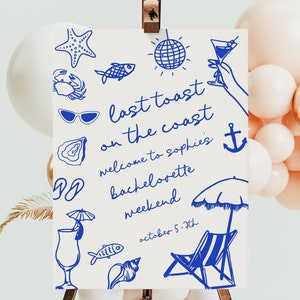 last toast
on the coast
welcome to sophie's
bachelorette
weekend
october 5-7th